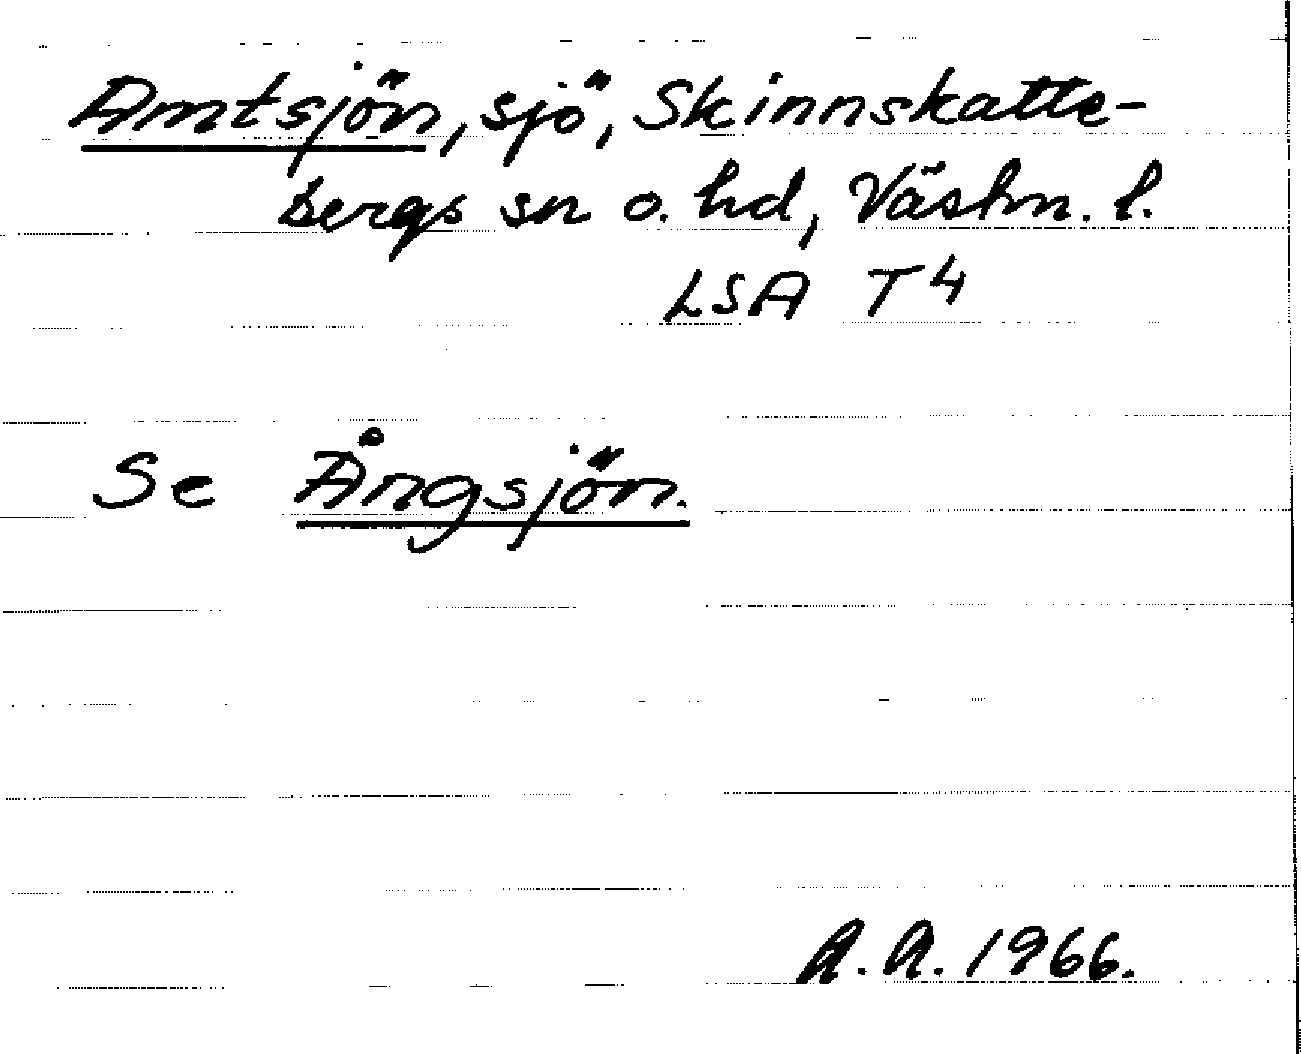 Amtsjön, sjö, Skinnskatte-
bergs sn o. hd, Västm. l.
LSA T4
Se Ångsjön.
A.A. 1966.